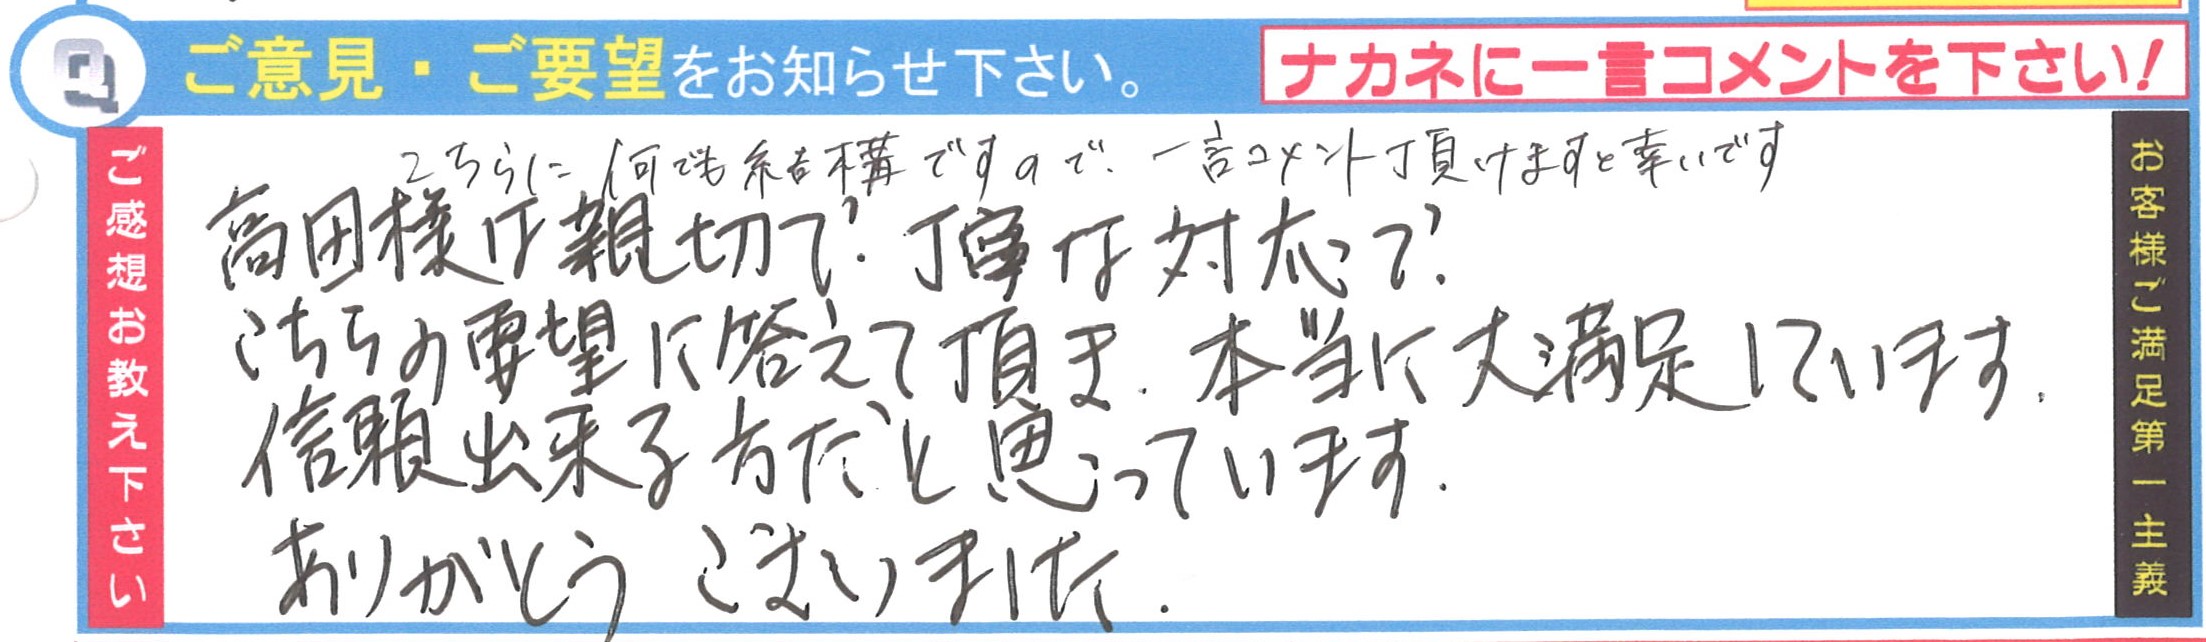 Q ご意見・ご要望をお知らせ下さい。 ナカネに一言コメントを下さい!
ご感想お教え下さい
こちらに何でも結構ですので、一言コメント頂けますと幸いです
高田様は親切で、丁寧な対応で、
こちらの要望に答えて頂き、本当に大満足しています。
信頼出来る方だと思っています。
ありがとうございました。
お客様ご満足第一主義